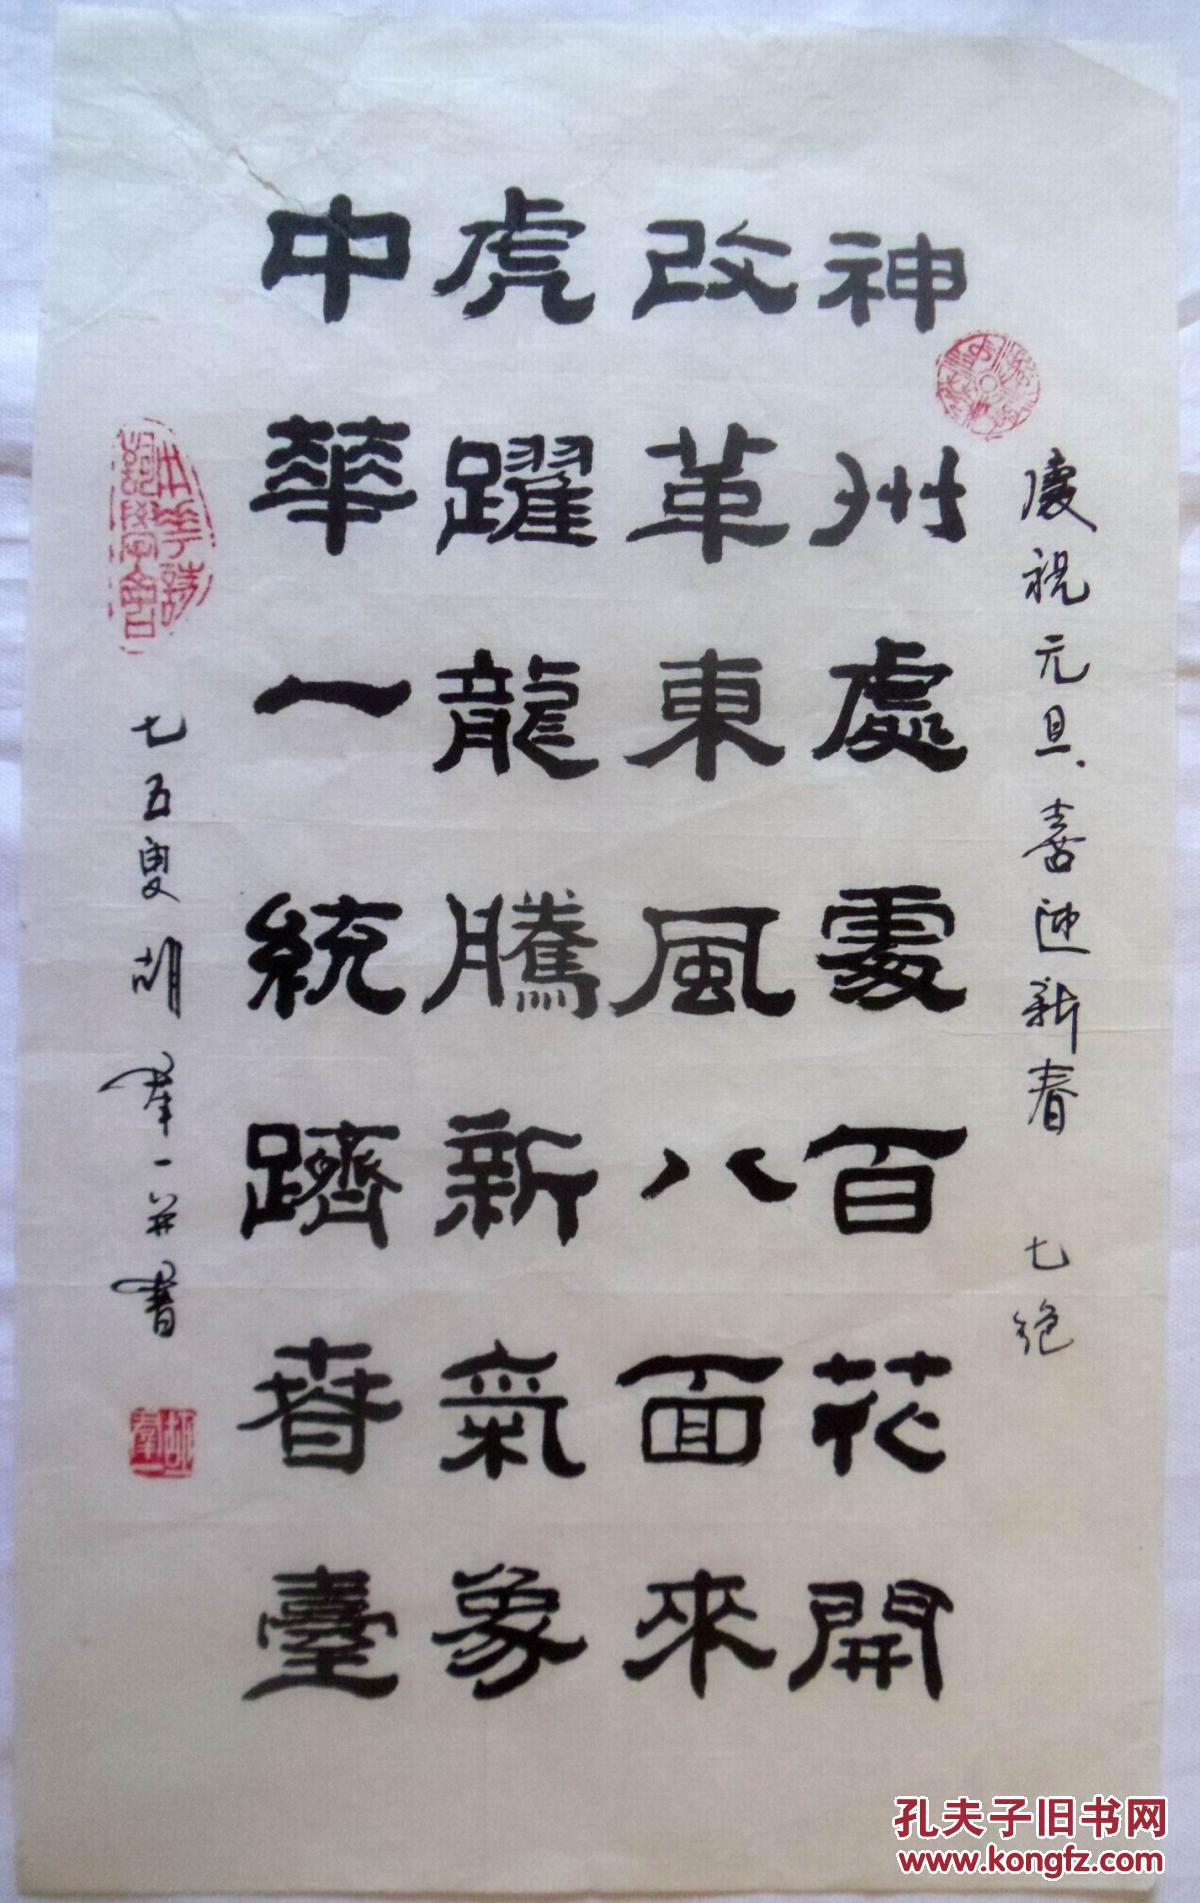 慶祝元旦、喜迎新春 七绝
神州處處百花開
改革東風八面來
虎躍龍騰新氣象
中華一統躋春臺
七五叟胡羣一并書
中华诗
詞學會
胡
羣一
孔夫子旧书网
www.kongfz.com